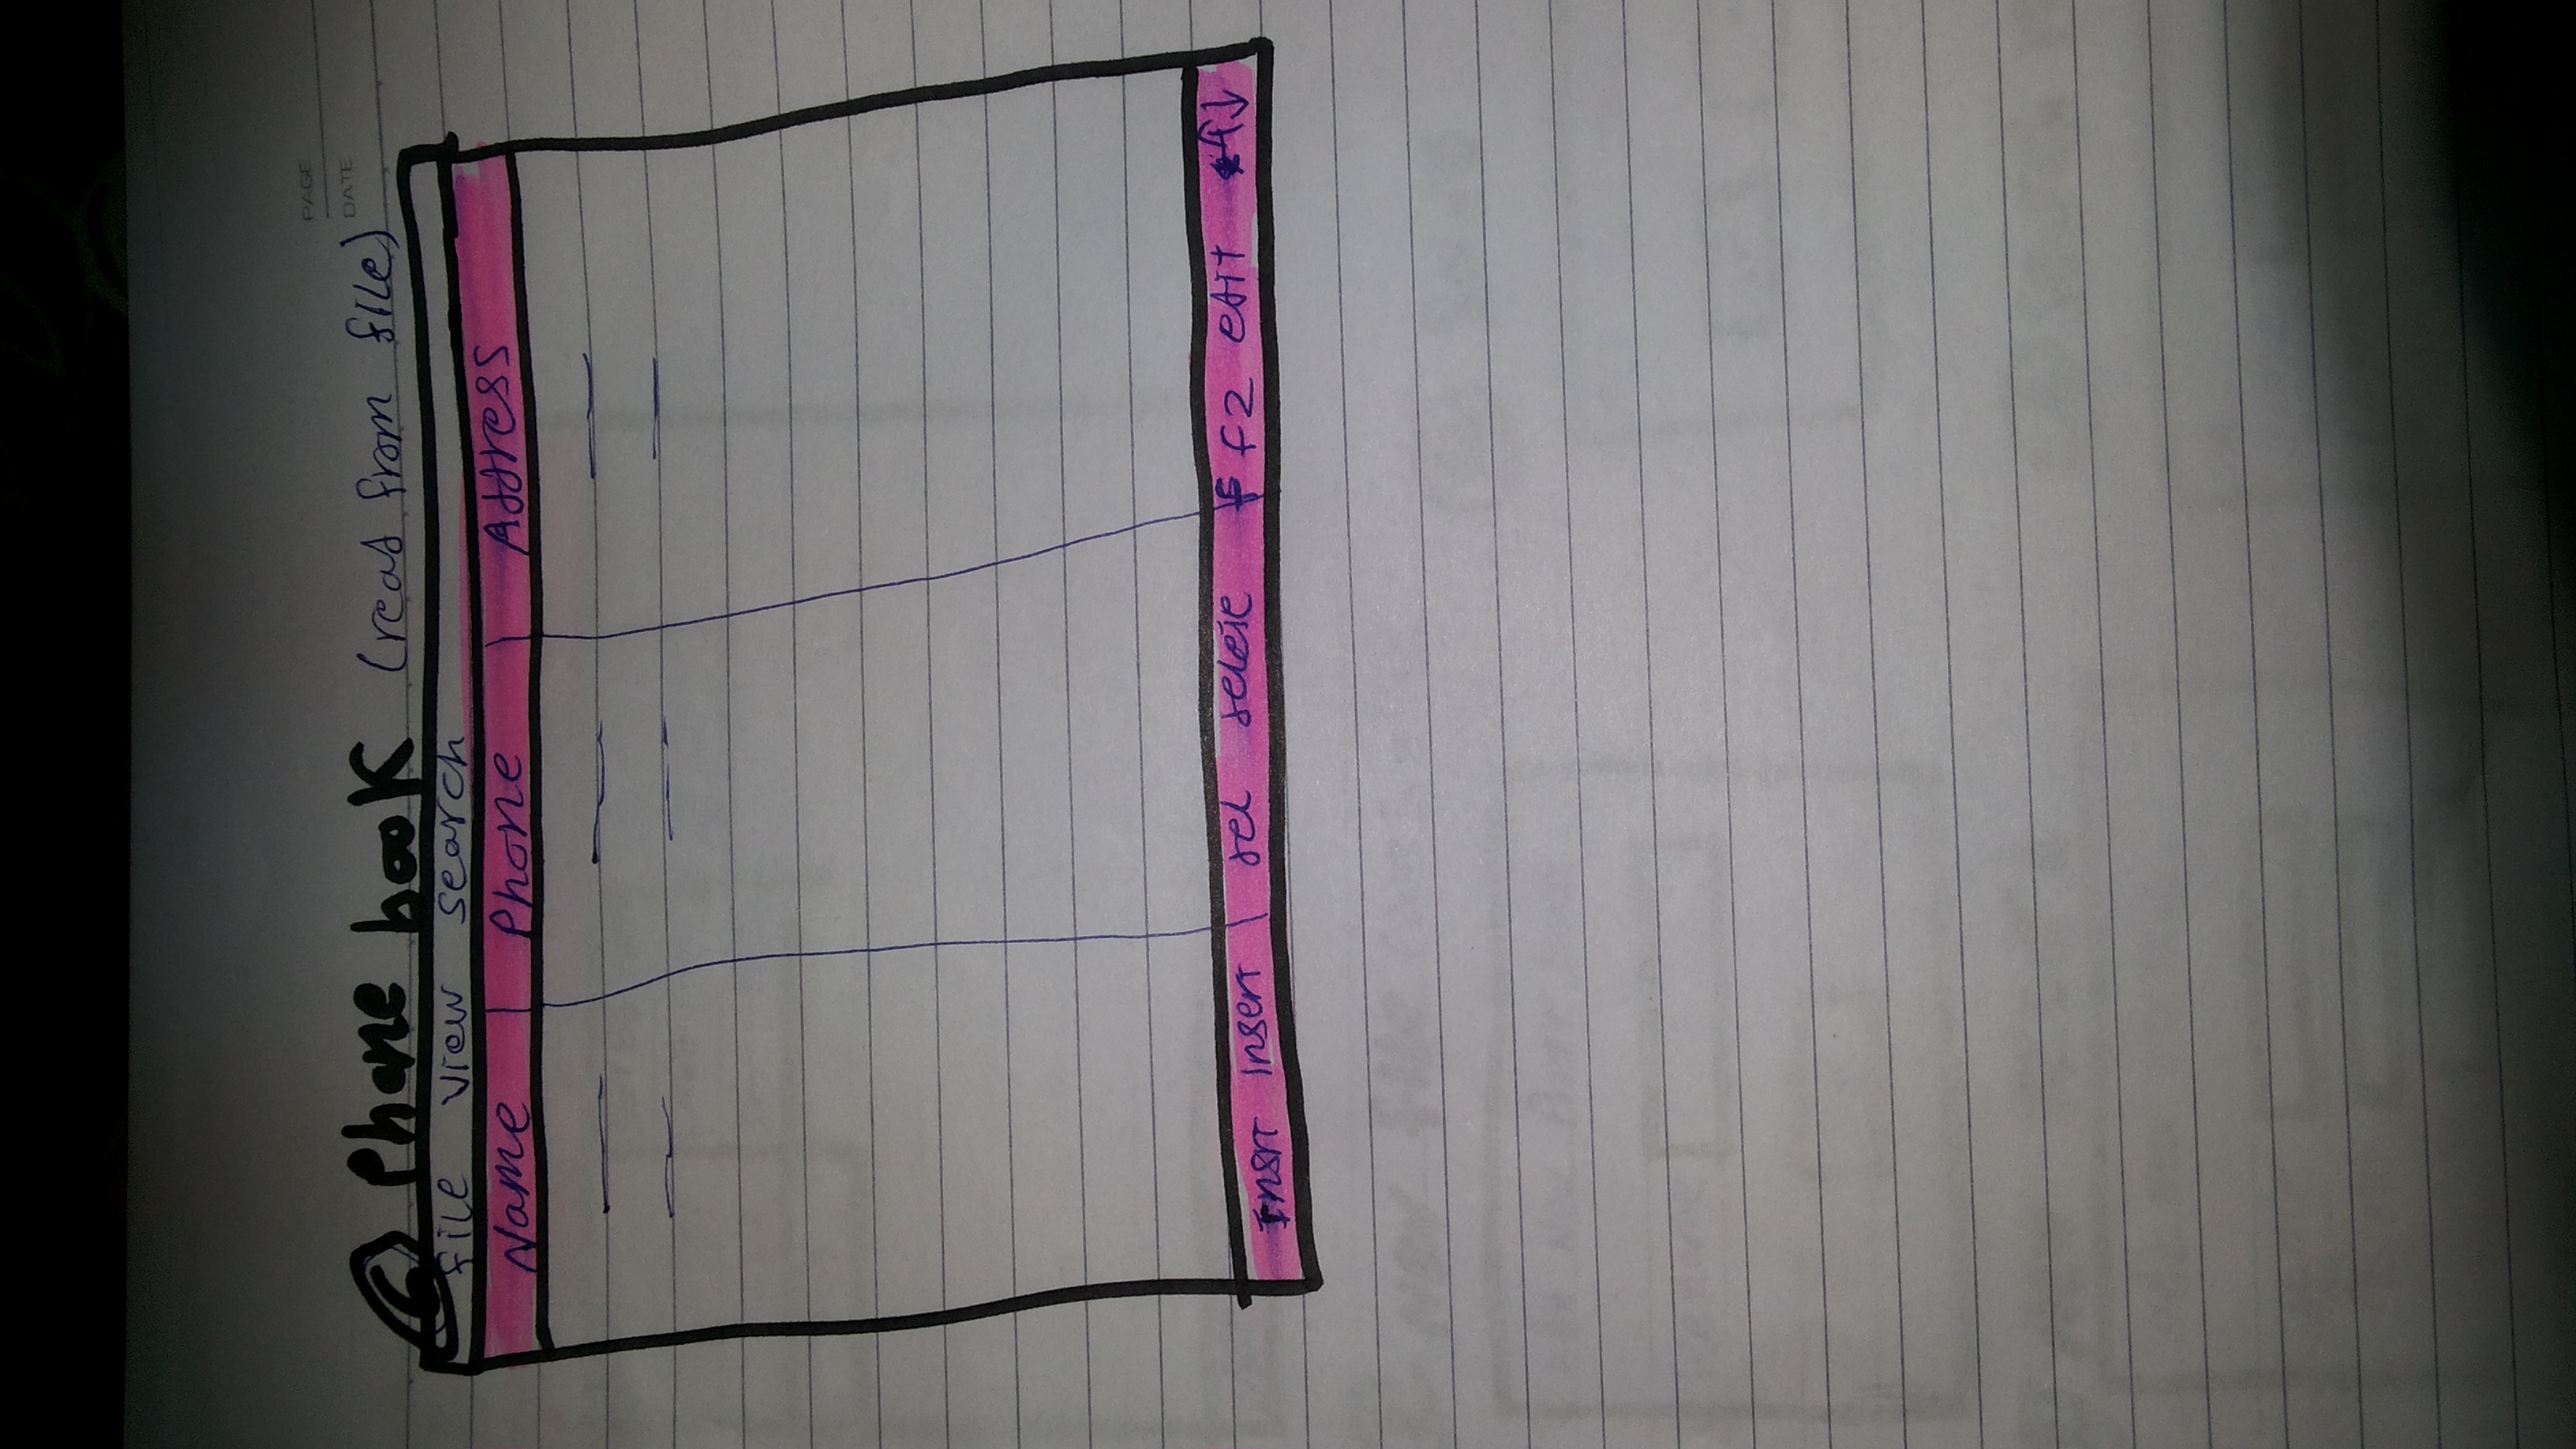 PAGE
DATE
6 Phone book (read from file)
file view search
Name | Phone | Address
Insrt Insert | del delete | F2 edit ↑↓